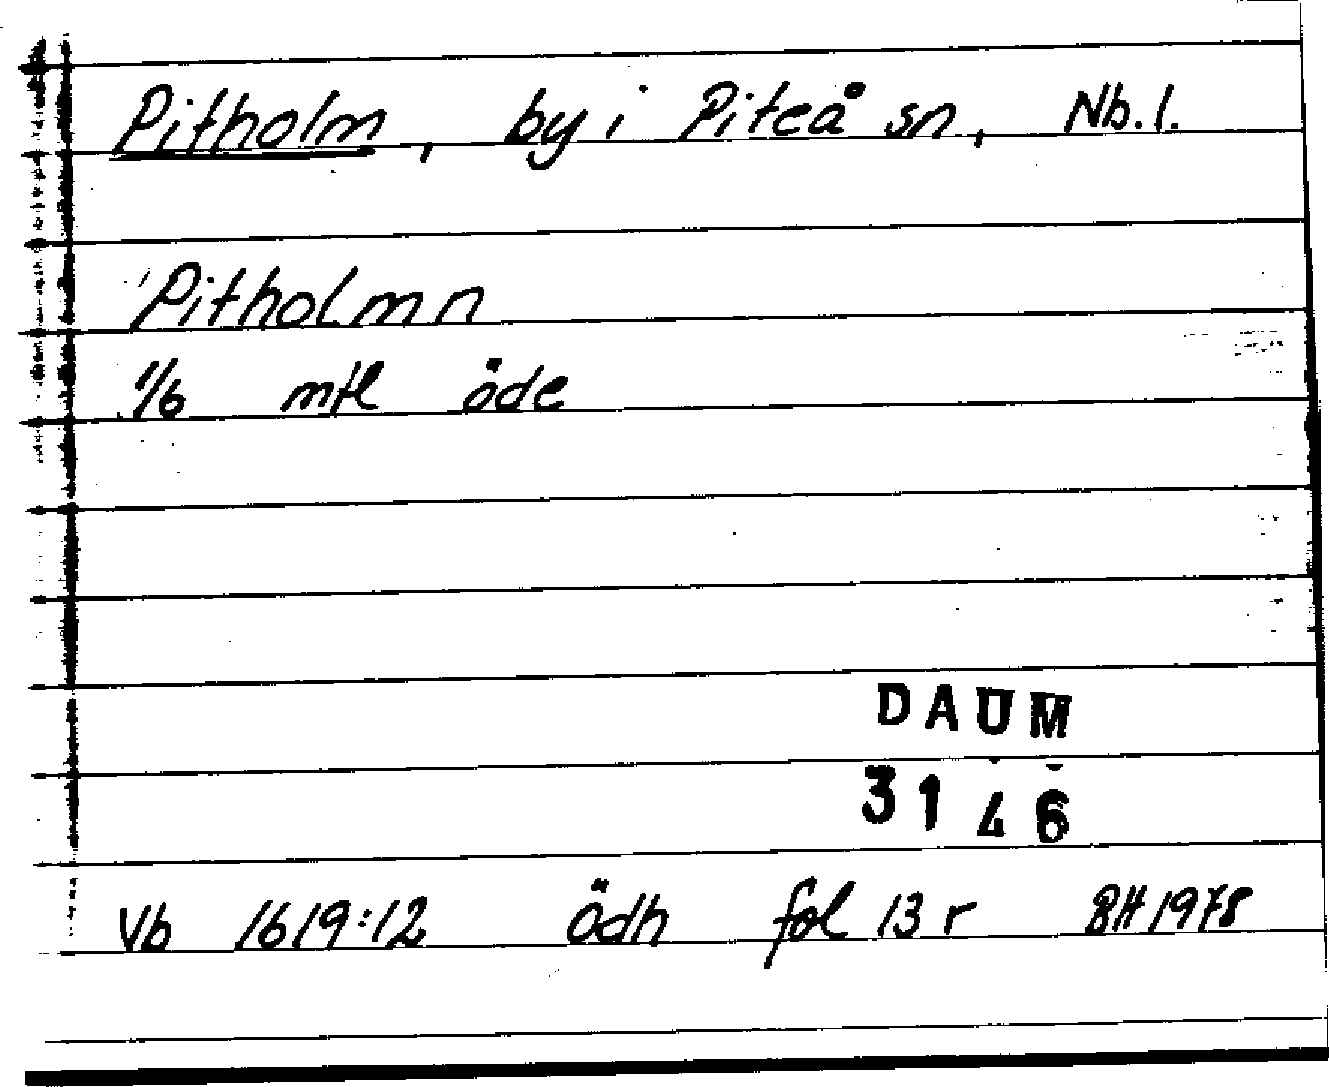 Pitholm, by i Piteå sn, Nb.l.
Pitholmn
1/6 mtl öde
DAUM
3146
Vb 1619:12 Ödh fol 13 r BH 1978